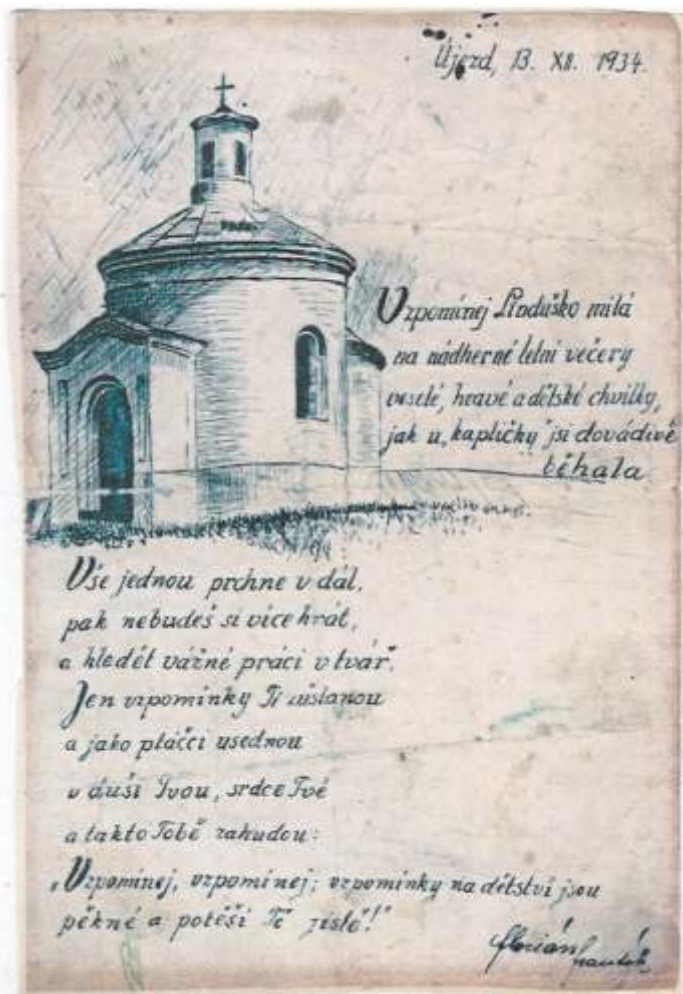 Újezd, 13. XII. 1934.
Vzpomínej Linduško milá
na nádherné letní večery
veselé, hravé a dětské chvilky,
jak u „kapličky" jsi dovádivě
běhala
Vše jednou prchne v dál,
pak nebudeš si více hrát,
a hledět vážné práci v tvář.
Jen vzpomínky Ti zůstanou
a jako ptáčci usednou
v duši Tvou, srdce Tvé
a takto Tobě zahudou:
„Vzpomínej, vzpomínej; vzpomínky na dětství jsou
pěkné a potěší Tě jistě!"
Florián